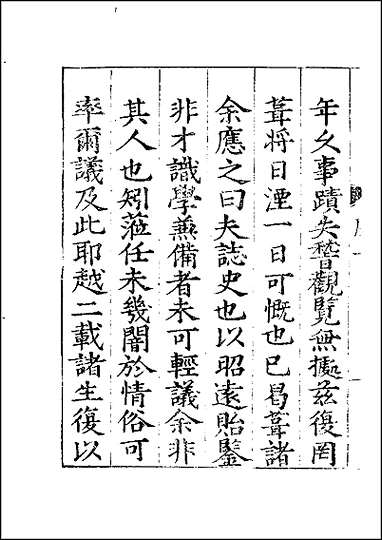 年久事蹟失瞀觀覽無據茲復罔
葺將日湮一日可慨也已曷葺諸
余應之曰夫誌史也以昭遠貽鑒
非才識學兼備者未可輕議余非
其人也矧蒞任未幾闇於情俗可
率爾議及此耶越二載諸生復以